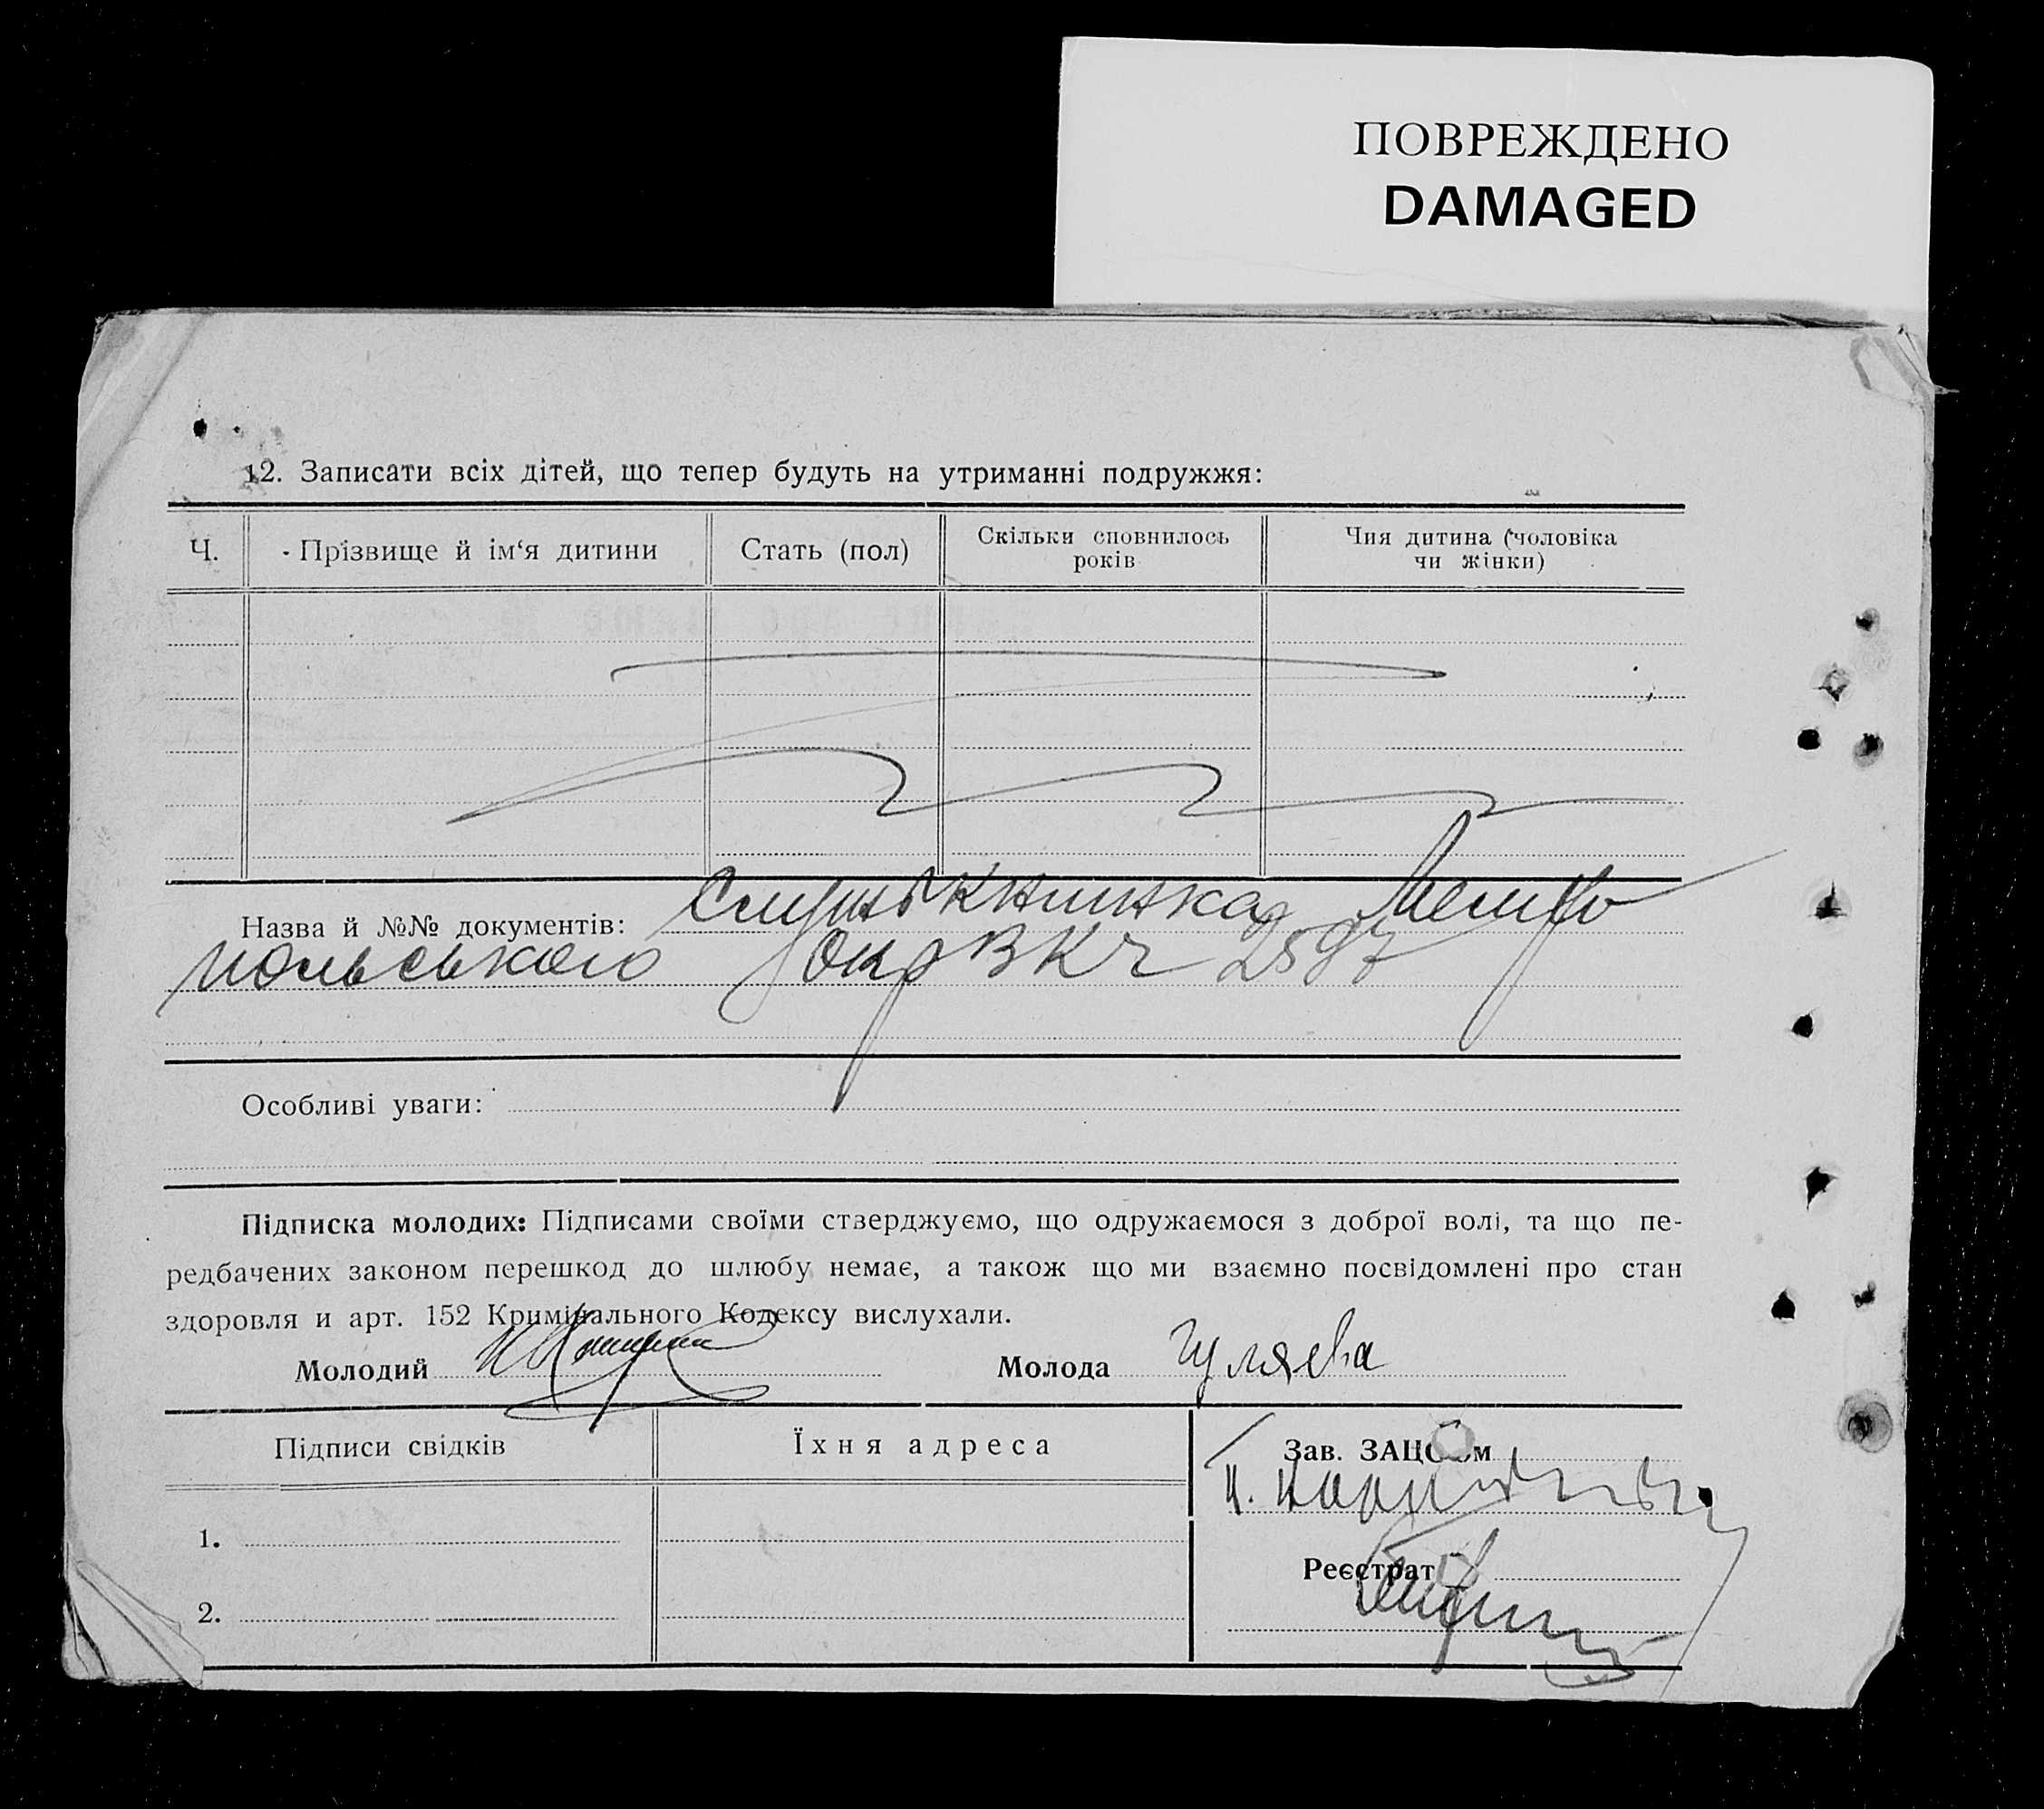 ПОВРЕЖДЕНО
DAMAGED
12. Записати всіх дітей, що тепер будуть на утриманні подружжя:
Ч.
Прізвище й ім‘я дитини
Стать (пол)
Скільки сповнилось
років
Чия дитина (чоловіка
чи жінки)
Назва й №№ документів: книжка
польського 2597
Особливі уваги:
Підписка молодих: Підписами своїми стверджуємо, що одружаємося з доброї волі, та що пе-
редбачених законом перешкод до шлюбу немає, а також що ми взаємно посвідомлені про стан
здоровля и арт. 152 Кримінального Кодексу вислухали.
Молодий
Молода Гуляева
Підписи свідків
Їхня адреса
Зав. ЗАЦСом
1.
Реєстрат
2.